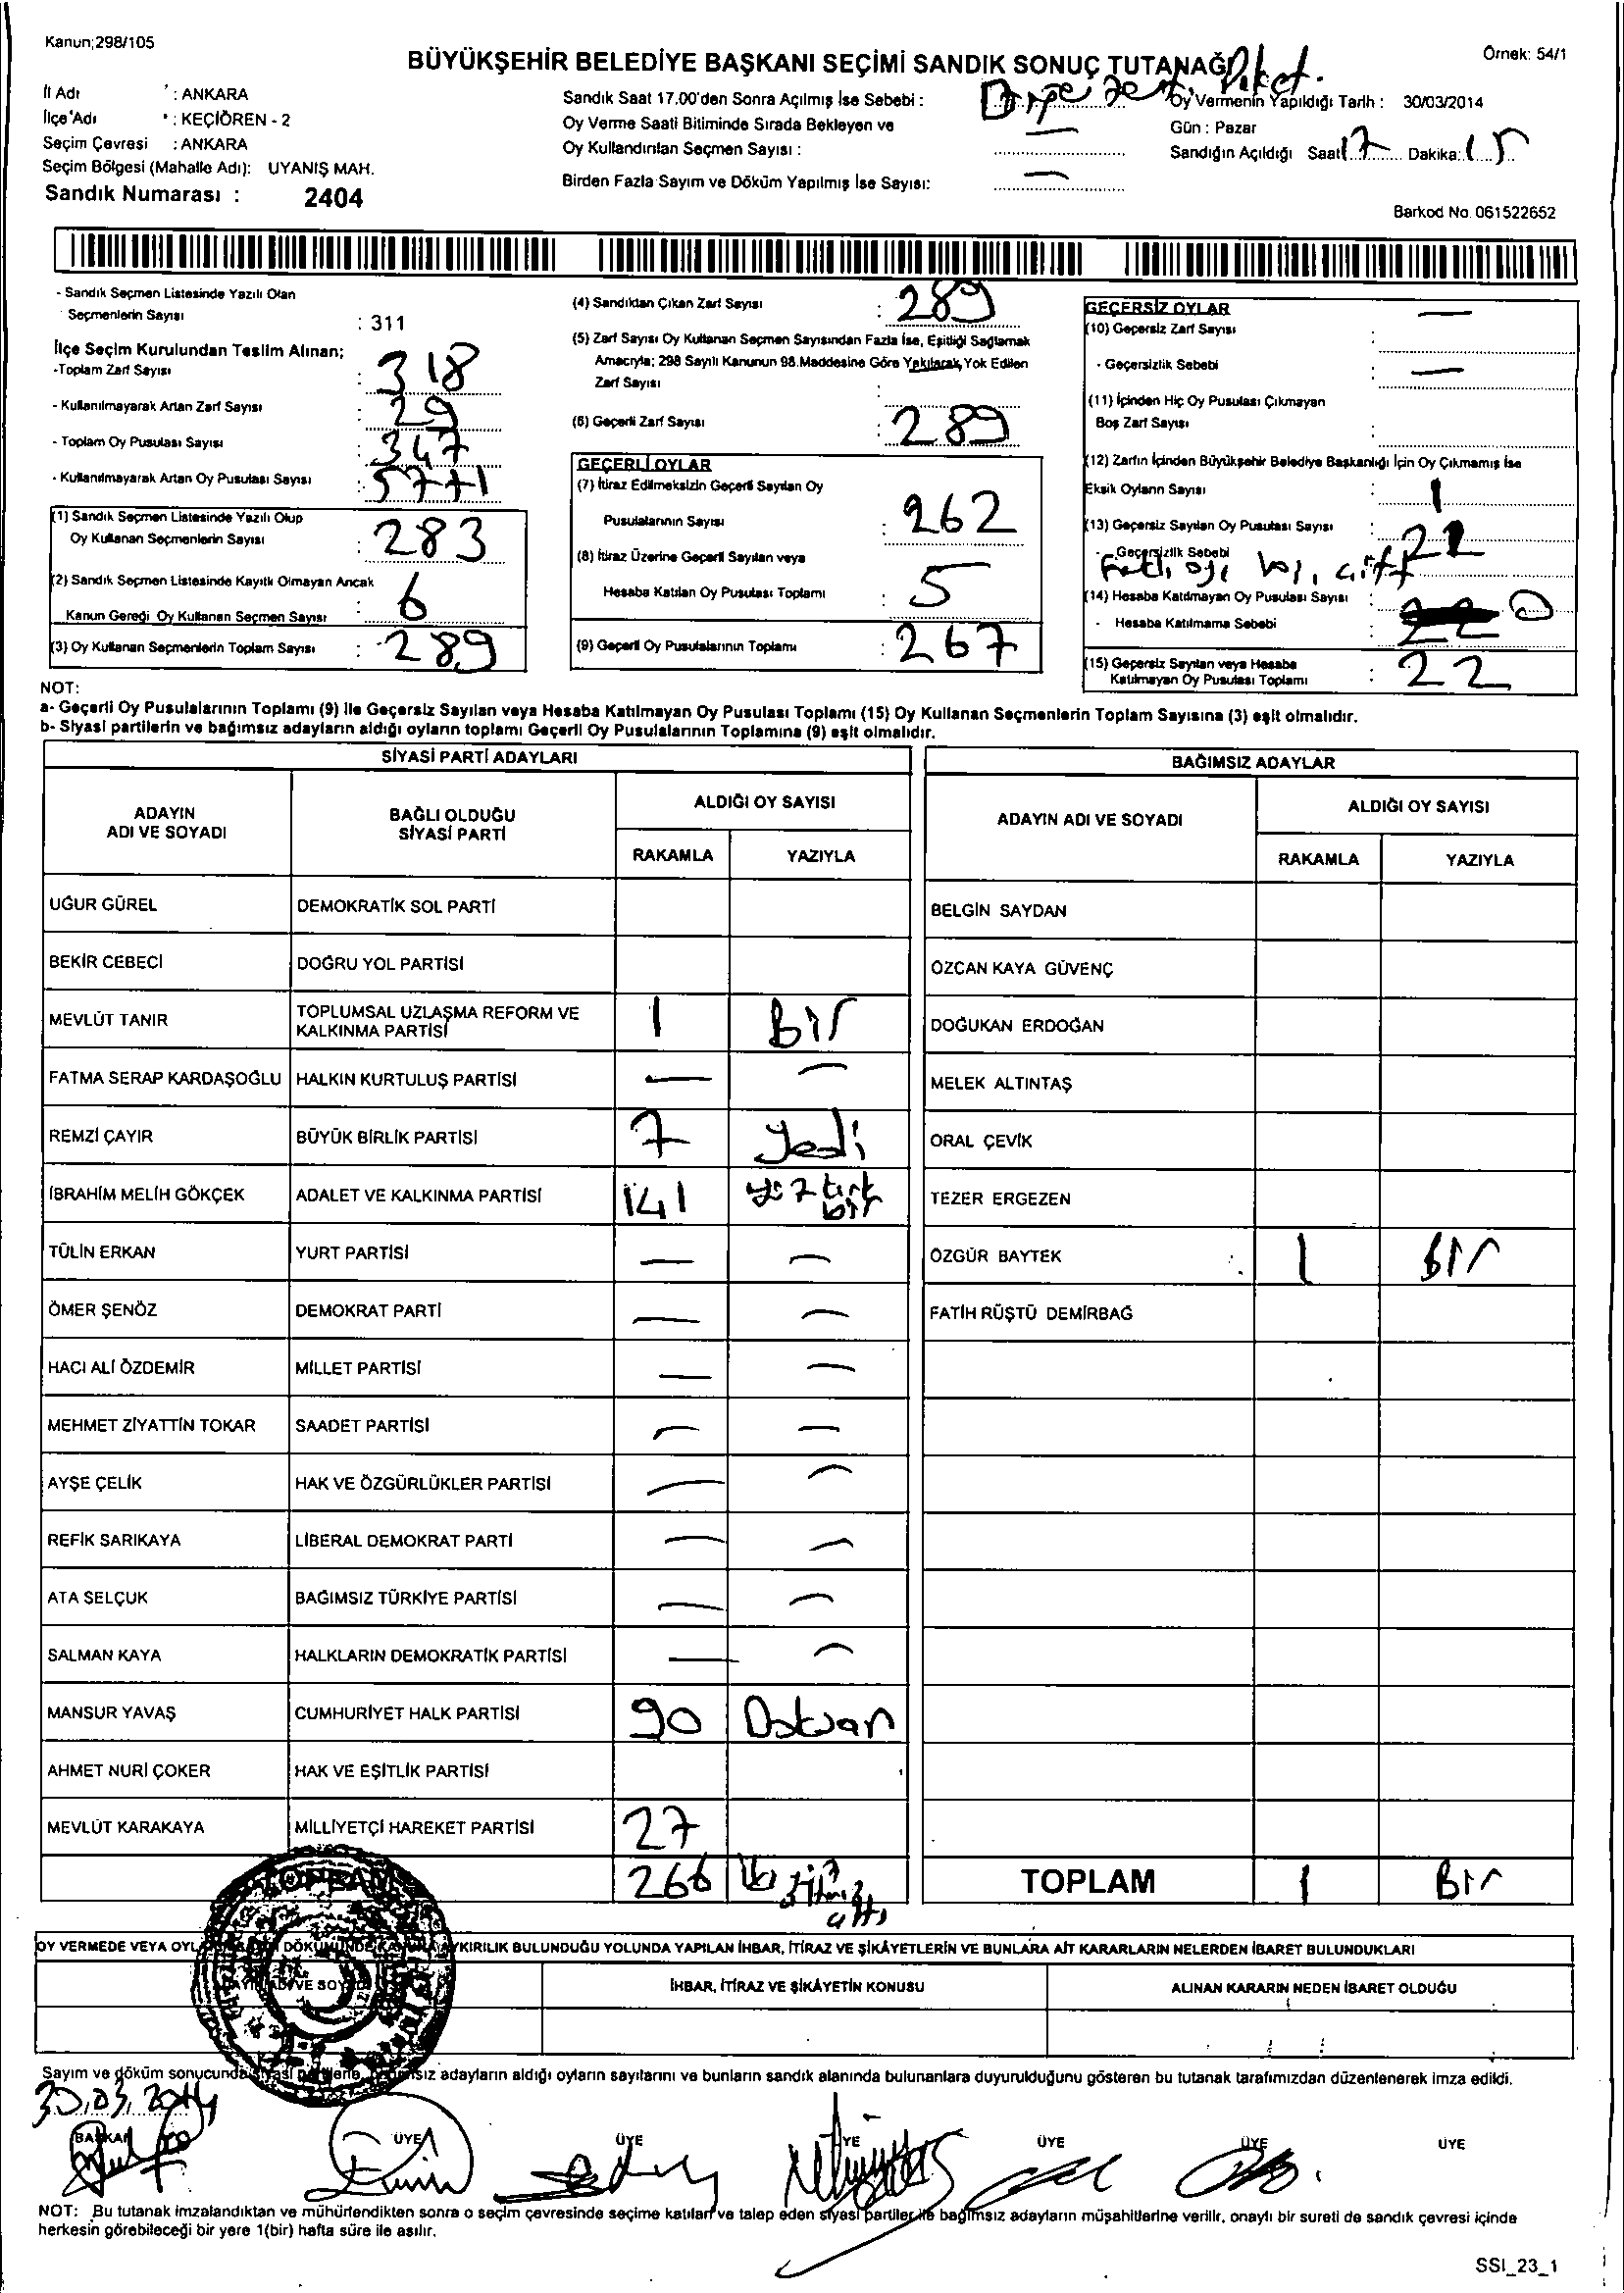 Kanun;298/105
Örnek: 54/1
BÜYÜKŞEHİR BELEDİYE BAŞKANI SEÇİMİ SANDIK SONUÇ TUTANAĞI
İl Adı : ANKARA
İlçe Adı : KEÇİÖREN - 2
Seçim Çevresi : ANKARA
Seçim Bölgesi (Mahalle Adı): UYANIŞ MAH.
Sandık Numarası : 2404
Sandık Saat 17.00'den Sonra Açılmış İse Sebebi :
Oy Verme Saati Bitiminde Sırada Bekleyen ve
Oy Kullandırılan Seçmen Sayısı : —
Birden Fazla Sayım ve Döküm Yapılmış İse Sayısı: —
Oy Vermenin Yapıldığı Tarih : 30/03/2014
Gün : Pazar
Sandığın Açıldığı Saat 17 Dakika: 15
Barkod No. 061522652
- Sandık Seçmen Listesinde Yazılı Olan
Seçmenlerin Sayısı : 311
İlçe Seçim Kurulundan Teslim Alınan;
-Toplam Zarf Sayısı : 318
- Kullanılmayarak Artan Zarf Sayısı : 29
- Toplam Oy Pusulası Sayısı : 347
- Kullanılmayarak Artan Oy Pusulası Sayısı :
(1) Sandık Seçmen Listesinde Yazılı Olup
Oy Kullanan Seçmenlerin Sayısı : 283
(2) Sandık Seçmen Listesinde Kayıtlı Olmayan Ancak
Kanun Gereği Oy Kullanan Seçmen Sayısı : 6
(3) Oy Kullanan Seçmenlerin Toplam Sayısı : 289
(4) Sandıktan Çıkan Zarf Sayısı : 289
(5) Zarf Sayısı Oy Kullanan Seçmen Sayısından Fazla İse, Eşitliği Sağlamak
Amacıyla; 298 Sayılı Kanunun 98.Maddesine Göre Yakılarak, Yok Edilen
Zarf Sayısı :
(6) Geçerli Zarf Sayısı : 289
GEÇERLİ OYLAR
(7) İtiraz Edilmeksizin Geçerli Sayılan Oy
Pusulalarının Sayısı : 262
(8) İtiraz Üzerine Geçerli Sayılan veya
Hesaba Katılan Oy Pusulası Toplamı : 5
(9) Geçerli Oy Pusulalarının Toplamı : 267
GEÇERSİZ OYLAR
(10) Geçersiz Zarf Sayısı : —
- Geçersizlik Sebebi : —
(11) İçinden Hiç Oy Pusulası Çıkmayan
Boş Zarf Sayısı :
(12) Zarfın İçinden Büyükşehir Belediye Başkanlığı İçin Oy Çıkmamış İse
Eksik Oyların Sayısı : 1
(13) Geçersiz Sayılan Oy Pusulası Sayısı :
- Geçersizlik Sebebi
(14) Hesaba Katılmayan Oy Pusulası Sayısı : 0
- Hesaba Katılmama Sebebi :
(15) Geçersiz Sayılan veya Hesaba
Katılmayan Oy Pusulası Toplamı : 22
NOT:
a- Geçerli Oy Pusulalarının Toplamı (9) ile Geçersiz Sayılan veya Hesaba Katılmayan Oy Pusulası Toplamı (15) Oy Kullanan Seçmenlerin Toplam Sayısına (3) eşit olmalıdır.
b- Siyasi partilerin ve bağımsız adayların aldığı oyların toplamı Geçerli Oy Pusulalarının Toplamına (9) eşit olmalıdır.
SİYASİ PARTİ ADAYLARI
ADAYIN ADI VE SOYADI
BAĞLI OLDUĞU SİYASİ PARTİ
ALDIĞI OY SAYISI
RAKAMLA YAZIYLA
UĞUR GÜREL DEMOKRATİK SOL PARTİ
BEKİR CEBECİ DOĞRU YOL PARTİSİ
MEVLÜT TANIR TOPLUMSAL UZLAŞMA REFORM VE KALKINMA PARTİSİ 1 Bir
FATMA SERAP KARDAŞOĞLU HALKIN KURTULUŞ PARTİSİ — —
REMZİ ÇAYIR BÜYÜK BİRLİK PARTİSİ 7 yedi
İBRAHİM MELİH GÖKÇEK ADALET VE KALKINMA PARTİSİ 141 yüz kırk bir
TÜLİN ERKAN YURT PARTİSİ — —
ÖMER ŞENÖZ DEMOKRAT PARTİ — —
HACI ALİ ÖZDEMİR MİLLET PARTİSİ — —
MEHMET ZİYATTİN TOKAR SAADET PARTİSİ — —
AYŞE ÇELİK HAK VE ÖZGÜRLÜKLER PARTİSİ — —
REFİK SARIKAYA LİBERAL DEMOKRAT PARTİ — —
ATA SELÇUK BAĞIMSIZ TÜRKİYE PARTİSİ — —
SALMAN KAYA HALKLARIN DEMOKRATİK PARTİSİ — —
MANSUR YAVAŞ CUMHURİYET HALK PARTİSİ 90 Doksan
AHMET NURİ ÇOKER HAK VE EŞİTLİK PARTİSİ
MEVLÜT KARAKAYA MİLLİYETÇİ HAREKET PARTİSİ 27
TOPLAM 266
BAĞIMSIZ ADAYLAR
ADAYIN ADI VE SOYADI
ALDIĞI OY SAYISI
RAKAMLA YAZIYLA
BELGİN SAYDAN
ÖZCAN KAYA GÜVENÇ
DOĞUKAN ERDOĞAN
MELEK ALTINTAŞ
ORAL ÇEVİK
TEZER ERGEZEN
ÖZGÜR BAYTEK 1 Bir
FATİH RÜŞTÜ DEMİRBAĞ
TOPLAM 1 Bir
OY VERMEDE VEYA OYLARIN DÖKÜMÜNDE KANUNA AYKIRILIK BULUNDUĞU YOLUNDA YAPILAN İHBAR, İTİRAZ VE ŞİKÂYETLERİN VE BUNLARA AİT KARARLARIN NELERDEN İBARET BULUNDUKLARI
ADI VE SOYADI
İHBAR, İTİRAZ VE ŞİKÂYETİN KONUSU
ALINAN KARARIN NEDEN İBARET OLDUĞU
Sayım ve döküm sonucunda siyasi partilerle, bağımsız adayların aldığı oyların sayılarını ve bunların sandık alanında bulunanlara duyurulduğunu gösteren bu tutanak tarafımızdan düzenlenerek imza edildi.
30.03.2014
BAŞKAN ÜYE ÜYE ÜYE ÜYE ÜYE ÜYE
NOT: Bu tutanak imzalandıktan ve mühürlendikten sonra o seçim çevresinde seçime katılan ve talep eden siyasi partiler ile bağımsız adayların müşahitlerine verilir, onaylı bir sureti de sandık çevresi içinde
herkesin görebileceği bir yere 1(bir) hafta süre ile asılır.
SSI_23_1